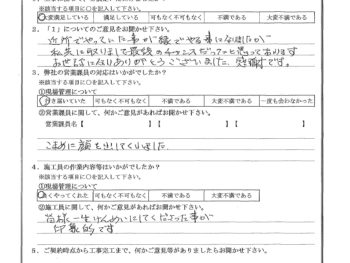 ※該当する項目に○を記入して下さい。
大変満足している 満足している 可もなく不可もなく 不満である 大変不満である
2．「1」についてのご意見をお聞かせ下さい。
近所でやっていた事が縁でやる事になりましたが
私共に取りまして最後のチャンスだったと思って居ります
お世話になりありがとうございました。感謝です。
3．弊社の営業譲員の対応はいかがでしたか？
※該当する項目に○を記入して下さい。
①現場管理について
行き届いていた 可もなく不可もなく 不満である 大変不満である 一度も会わなかった
②営業譲員に関して、何かご意見があればお聞かせ下さい。
営業譲員名【 】【 】【 】
こまめに顔を出してくれました。
4．施工員の作業内容等はいかがでしたか？
※該当する項目に○を記入して下さい。
①現場管理について
良くやってくれた 可もなく不可もなく 不満である 大変不満である
②施工員に関して、何かご意見があればお聞かせ下さい。
皆様一生けんめいにしてくださった事が
印象的です
5．ご契約時点から工事完工まで、何かご意見等がありましたらお聞かせ下さい。